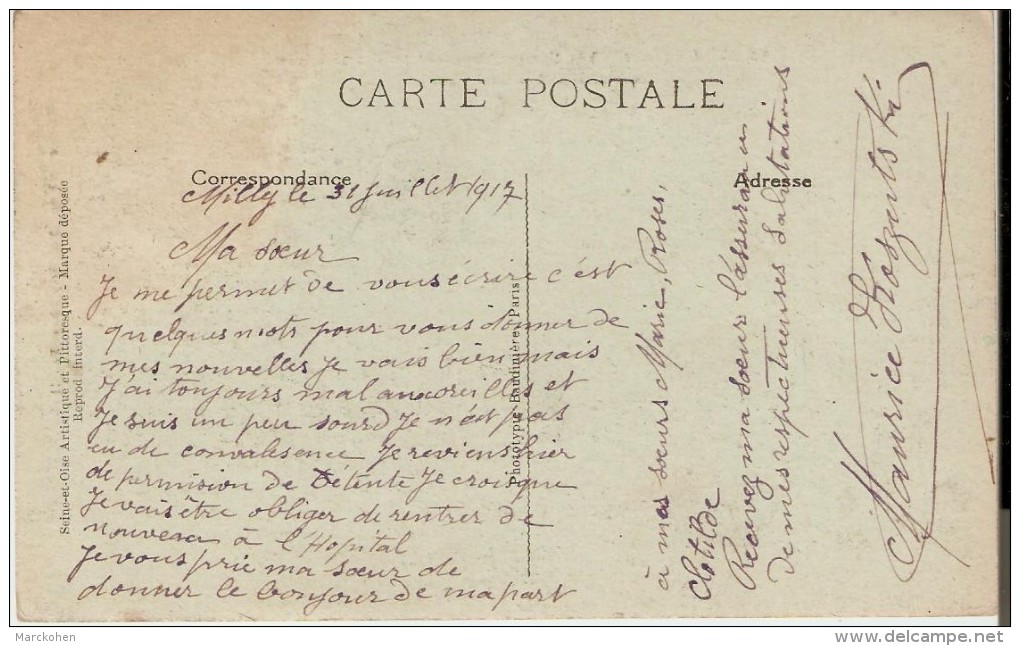 CARTE POSTALE
Correspondance
Adresse
Milly le 31 juillet 1917
Ma sœur
Je me permet de vous écrire c'est
quelques mots pour vous donner de
mes nouvelles Je vais bien mais
J'ai toujours mal au oreilles et
Je suis un peu sourd Je n'ét pas
eu de convalesence Je reviens hier
de permision de Détente Je croi que
Je vais être obliger de rentrer de
nouveau à l'Hopital
Je vous prie ma sœur de
donner le bonjour de ma part
à mes sœurs Marie, Roses,
Clotilde
Recevez ma sœur l'asseurance
De mes respectueuses Salutations
Maurice
Seine-et-Oise Artistique et Pittoresque - Marque déposée
Reprod. Interd.
Phototypie Baudinière, Paris
Marckohen
delcampe.net